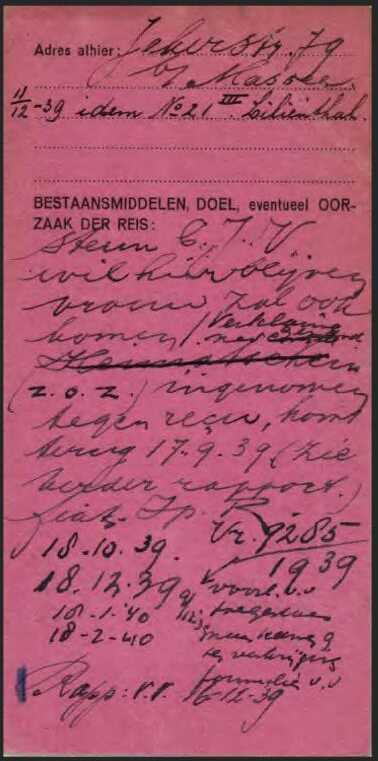 Adres alhier: Jekerstr. 79
b/ Massee.
11/12-39 idem No 21 III. Lilienthal.
BESTAANSMIDDELEN, DOEL, eventueel OOR-
ZAAK DER REIS:
steun C. J. V
wil hier blijven
vrouw zal ook
komen / Verklaring
Heimatschein
(z.o.z.) ingenomen
tegen reçu, komt
terug 17.9.39 (zie
verder rapport.)
fiat
18-10-39. Vr. 9285
1939
18.12.39 voorl. v.v
18-1-'40 toegelaten
18-2-40
ter verkrijging
formulier v.v
Rapp: v.v. 16-12-39